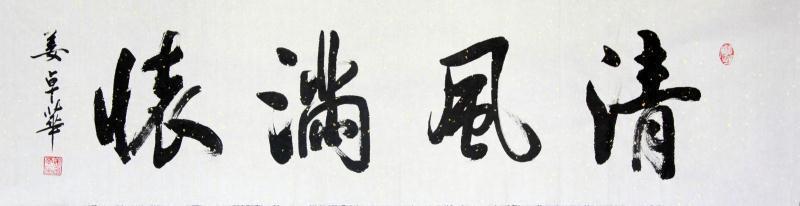 清風滿懷
姜卓華